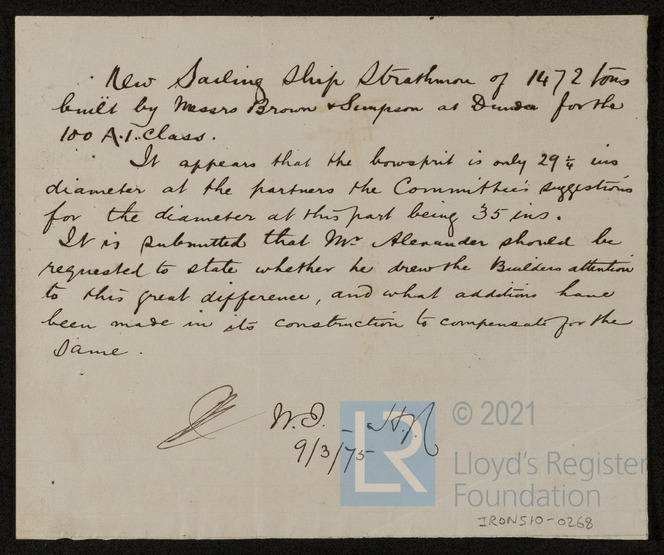 New Sailing Ship Strathmore of 1472 tons
built by Messrs Brown & Simpson at Dundee for the
100 A.1. Class.
It appears that the bowsprit is only 29 1/4 ins
diameter at the partners the Committee's suggestions
for the diameter at this part being 35 ins.
It is submitted that Mr Alexander should be
requested to state whether he drew the Builders attention
to this great difference, and what additions have
been made in its construction to compensate for the
same.
W.J. _ H.J.
9/3/75
LR
© 2021
Lloyd's Register
Foundation
IRON510-0268